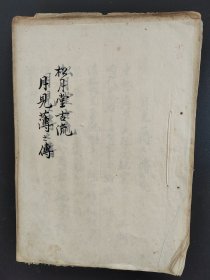 松月堂古流
月見薄之傳